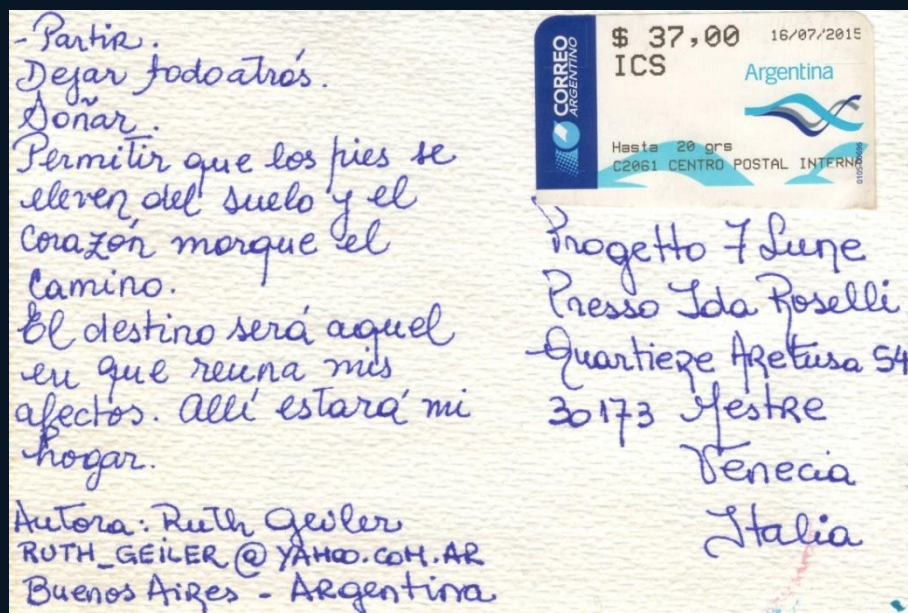 -Partir.
Dejar todo atrás.
Soñar.
Permitir que los pies se
eleven del suelo y el
corazón marque el
camino.
El destino será aquel
en que reuna mis
afectos. Allí estará mi
hogar.
Autora: Ruth Geiler
RUTH_GEILER@YAHOO.COM.AR
Buenos Aires - Argentina
CORREO
ARGENTINO
$ 37,00 16/07/2015
ICS
Argentina
Hasta 20 grs
C2061 CENTRO POSTAL INTERNA
Progetto 7 Lune
Presso Ida Roselli
Quartiere Aretusa 54
30173 Mestre
Venecia
Italia